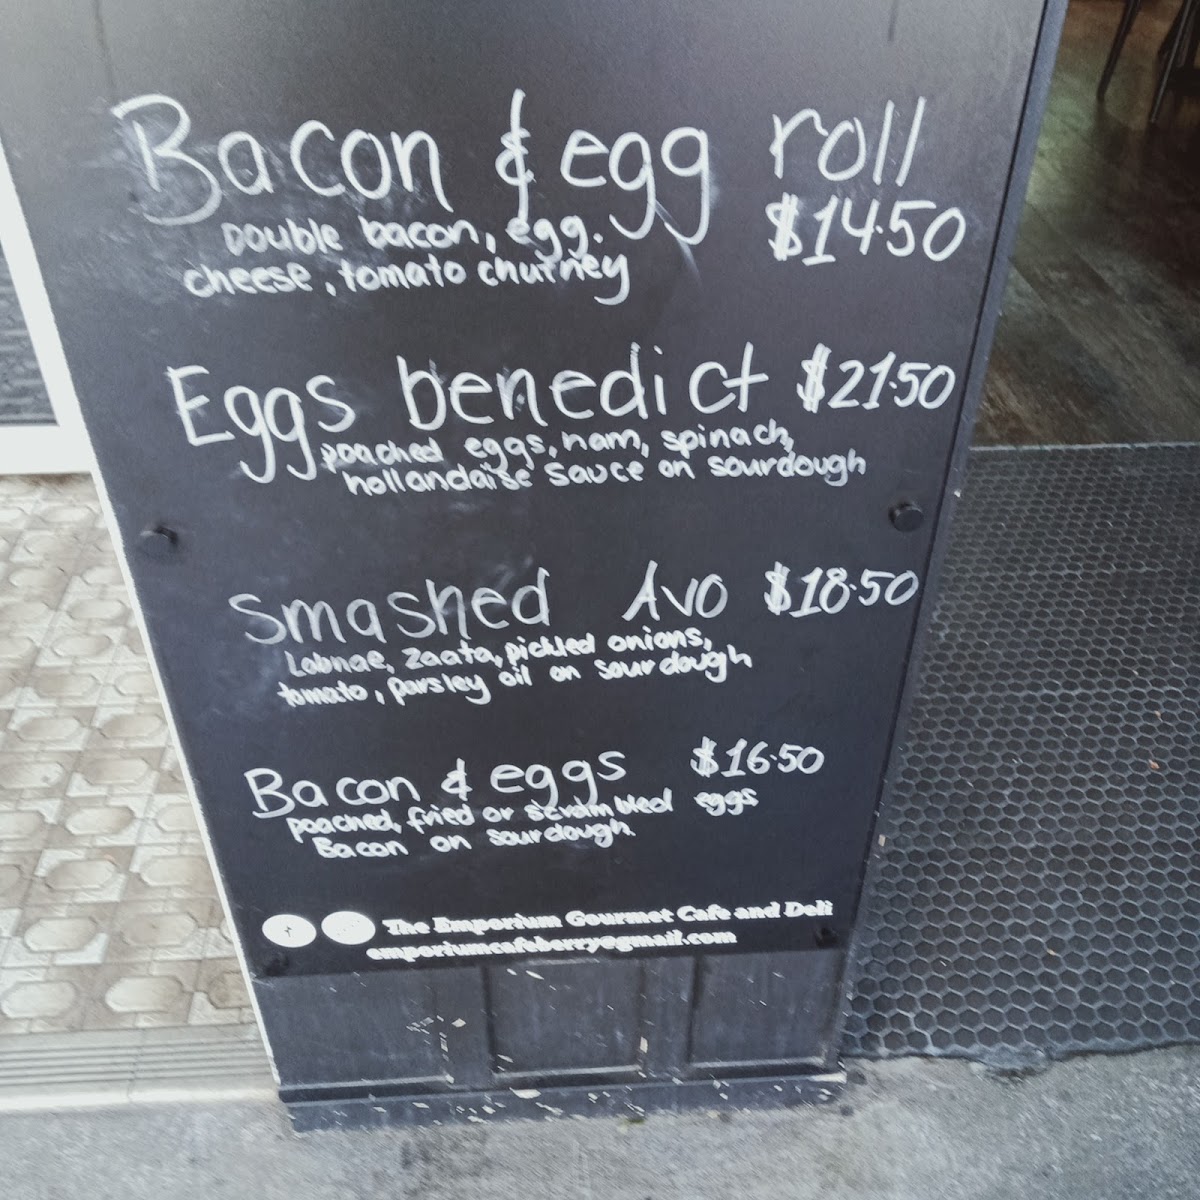 Bacon & egg roll
$14.50
Double bacon, egg.
cheese, tomato chutney
Eggs benedict $21.50
poached eggs, ham, spinach,
hollandaise sauce on sourdough
Smashed Avo $18.50
Labnae, Zaata, pickled onions,
tomato, parsley oil on sourdough
Bacon & eggs $16.50
poached, fried or scrambled eggs
Bacon on sourdough.
The Emporium Gourmet Cafe and Deli
emporiumcafeberry@gmail.com